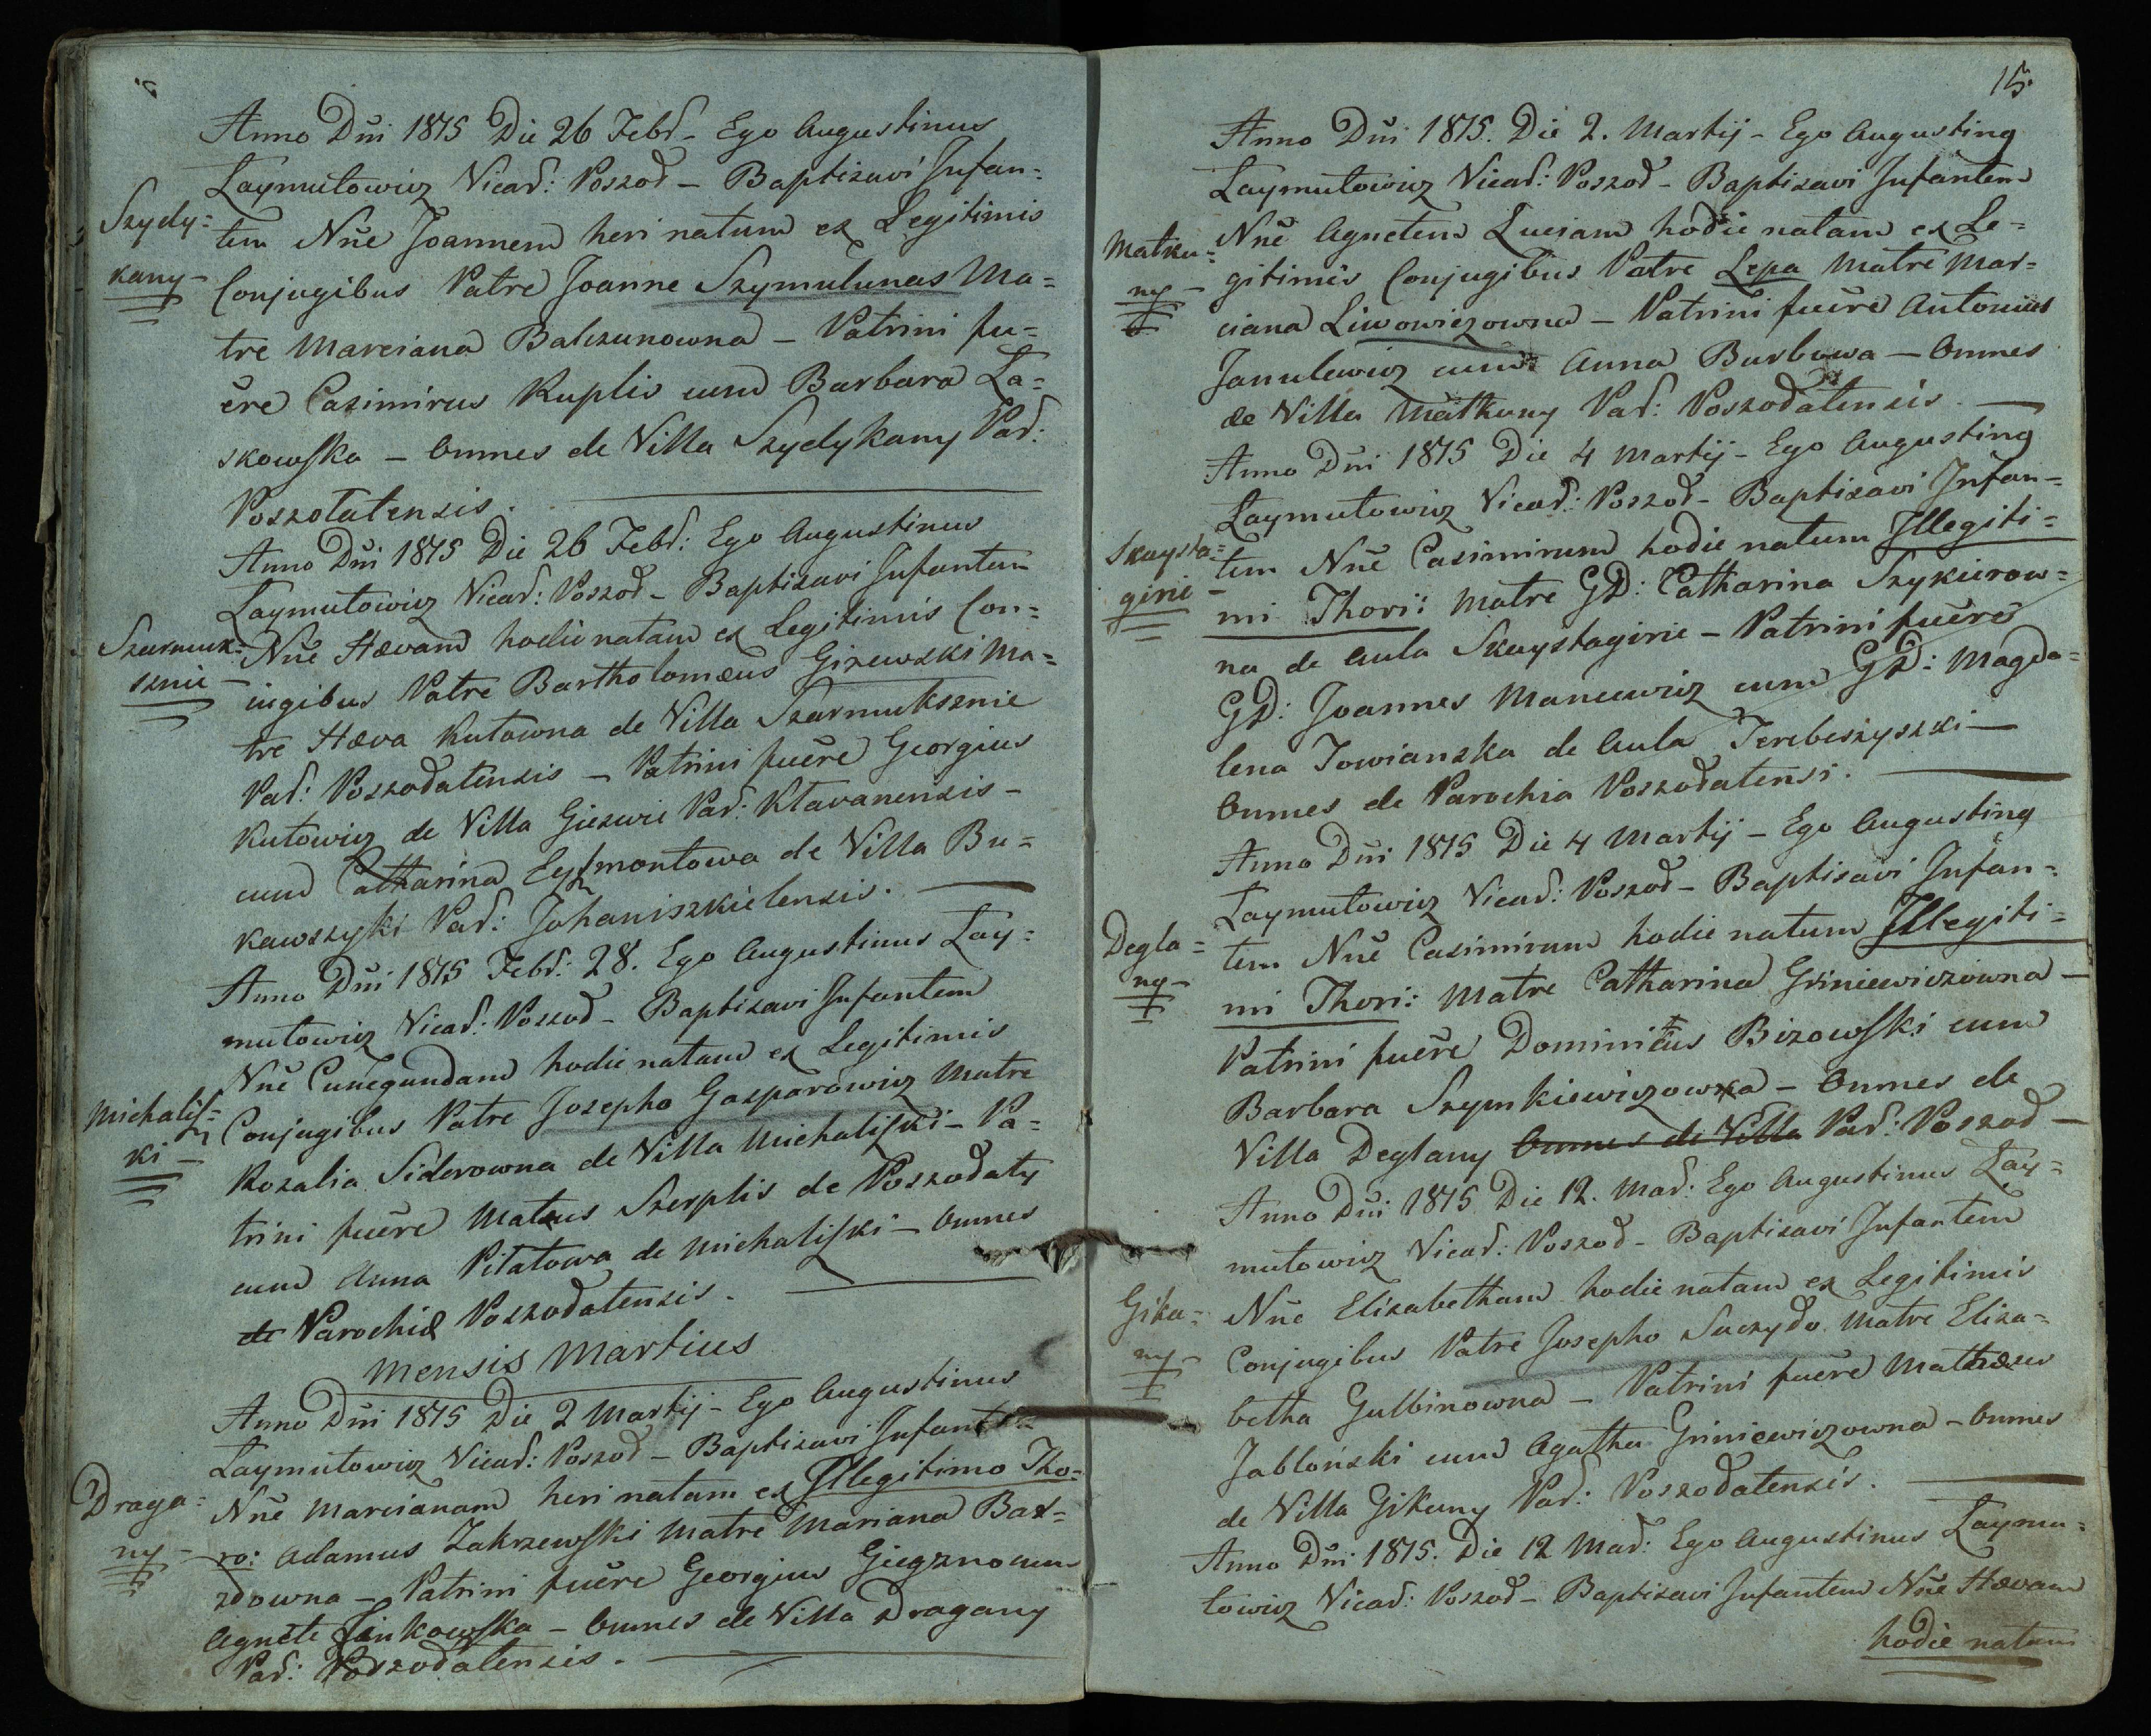 Anno Dni 1815 Die 26 Febr. Ego Augustinus
Laymutowicz Vicar: Poszod – Baptizavi Infan=
Szydy= tem Nne Joannem heri natum ex Legitimis
kany – Conjugibus Patre Joanne Szymulunas Ma=
tre Marciana Balczunowna – Patrini fu=
ere Casimirus Kuplis cum Barbara La=
skowska – Omnes de Villa Szydykany Par:
Poszotatensis.
Anno Dni 1815 Die 26 Febr: Ego Augustinus
Laymutowicz Vicar: Poszod – Baptizavi Infantem
Szarmuk= Nne Hævam hodie natam ex Legitimis Con=
sznie – iugibus Patre Bartholomæus Girewski Ma=
tre Hæva Kutowna de Villa Szarmuksznie
Par: Poszodatensis – Patrini fuere Georgius
Kutowicz de Villa Giezwie Par: Klavanensis –
cum Catharina Eysmontowa de Villa Bu=
kawszyki Par: Johaniszkielensis.
Anno Dni 1815 Febr: 28. Ego Augustinus Lay=
mutowicz Vicar: Poszod – Baptizavi Infantem
Nne Cunegundam hodie natam ex Legitimis
Michalisz= Conjugibus Patre Josepho Gasparowicz Matre
ki – Rozalia Siderowna de Villa Michaliszki – Pa=
trini fuere Mateus Szerplis de Poszodaty
cum Anna Pilatowa de Michaliszki – Omnes
de Parochiæ Poszodatensis.
Mensis Martius
Anno Dni 1815 Die 2 Martij – Ego Augustinus
Laymutowicz Vicar: Poszod – Baptizavi Infante=
Draga= Nne Marcianam heri natam ex Illegitimo Tho=
ny – ro: Adamus Zakrzewski Matre Mariana Bar=
zdowna – Patrini fuere Georgius Giegzno cum
Agnete Jankowska – Omnes de Villa Dragany
Par: Poszodatensis.
15.
Anno Dni 1815. Die 2. Martij – Ego Augustinq
Laymutowicz Vicar: Poszod – Baptizavi Infantem
Matku= Nne Agnetem Luciam hodie natam ex Le=
ny – gitimis Conjugibus Patre Lepa Matre Mar=
ciana Liwowiczowna – Patrini fuere Antonius
Janulewicz cum Anna Burbowa – Omnes
de Villa Matkuny Par: Poszodatensis.
Anno Dni 1815 Die 4 Martij – Ego Augustinq
Laymutowicz Vicar: Poszod – Baptizavi Infan=
Skaysta= tem Nne Casimirum hodie natum Illegiti=
girie – mi Thori: Matre GD: Catharina Szykierow=
na de Aula Skaystagirie – Patrini fuere
GD: Joannes Mancewicz cum GD: Magda=
lena Towianska de Aula Terebeszyszki –
Omnes de Parochia Poszodatensi.
Anno Dni 1815 Die 4 Martij – Ego Augustinq
Laymutowicz Vicar: Poszod – Baptizavi Infan=
Degla= tem Nne Casimirum hodie natum Illegiti=
ny – mi Thori: Matre Catharina Griniewiczowna –
Patrini fuere Dominicus Bizowski cum
Barbara Szymkiewiczowna – Omnes de
Villa Deglany Omnes de Villa Par: Poszod –
Anno Dni 1815 Die 12. Mar: Ego Augustinus Lay=
mutowicz Vicar: Poszod – Baptizavi Infantem
Gika= Nne Elizabetham hodie natam ex Legitimis
ny – Conjugibus Patre Josepho Suczydo Matre Eliza=
betha Gulbinowna – Patrini fuere Mathæus
Jabloński cum Agatha Griniewiczowna – Omnes
de Villa Gikany Par: Poszodatensis.
Anno Dni 1815. Die 12 Mar: Ego Augustinus Laymu=
towicz Vicar: Poszod – Baptizavi Infantem Nne Hævam
hodie natam